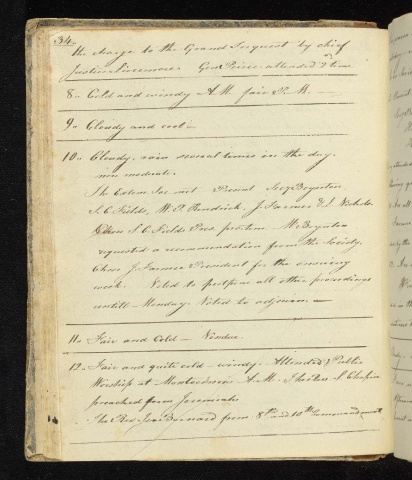 34.
the charge to the Grand Inquest by chief
Justice Livermore. Gen Peirce attended 2 time
8. Cold and windy A.M. fair P.M. —
9. Cloudy and cool —
10. Cloudy. rain several times in the day.
more moderate.
The Eden Soc met Present Boynton
S. C. Fields, W. P. Kendrick, J. Farmer & Nichols.
Chose S. C. Fields Pres pro tem. Mr Boynton
requested a recommendation from the Society.
Chose J. Farmer President for the ensuing
week. Voted to postpone all other proceedings
untill Monday. Voted to adjourn. —
11. Fair and Cold —
12. Fair and quite cold — windy. Attended Public
Worship at A.M. The Rev. S. Chapin
preached from Jeremiah
The Rev. Barnard from 8th and 10th